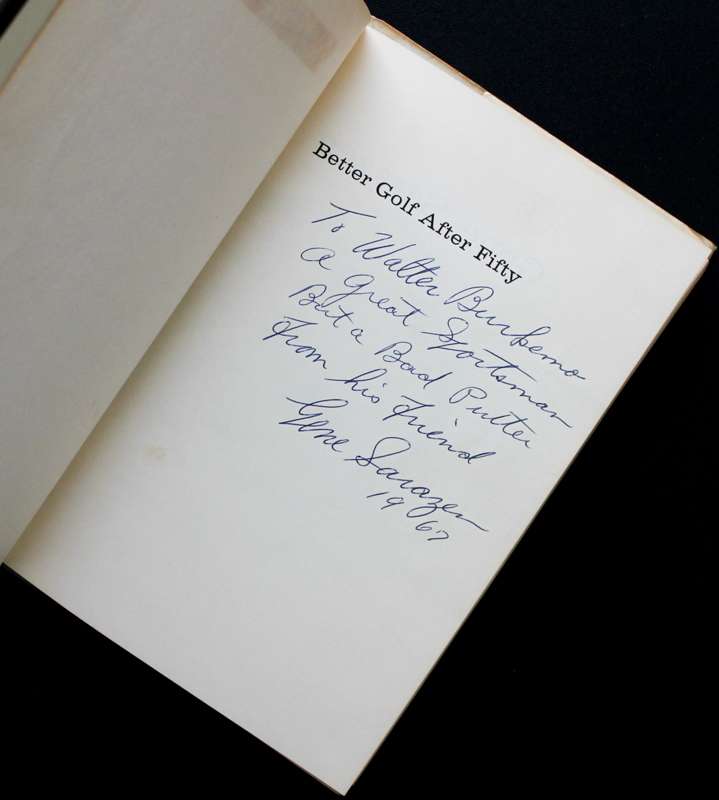 Better Golf After Fifty
To Walter Burkemo
A Great Sportsman
But a Bad Putter
From his Friend
Gene Sarazen
1967